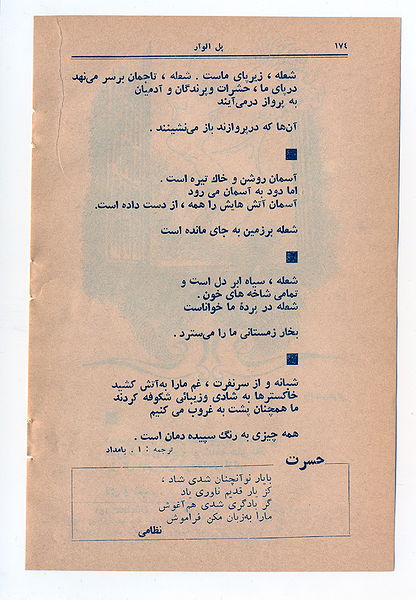 ۱۷٤
پل الوار
شعله ، زیرپای ماست . شعله ، تاجمان برسر می‌نهد
درپای ما ، حشرات وپرندگان و آدمیان
به پرواز درمی‌آیند
آن‌ها که درپروازند باز می‌نشینند .
آسمان روشن و خاك تیره است .
اما دود به آسمان می رود
آسمان آتش هایش را همه ، از دست داده است.
شعله برزمین به جای مانده است
شعله ، سیاه ابر دل است و
تمامی شاخه های خون .
شعله در پردهٔ ما خواناست
بخار زمستانی ما را می‌سترد .
شبانه و از سرنفرت ، غم مارا به‌آتش کشید
خاکسترها به شادی وزیبائی شکوفه کردند
ما همچنان پشت به غروب می کنیم
همه چیزی به رنگ سپیده دمان است .
ترجمه : ا . بامداد
حسرت
بایار نوآنچنان شدی شاد ،
کز یار قدیم ناوری یاد
گر بادگری شدی هم‌آغوش
مارا به‌زبان مکن فراموش
نظامی